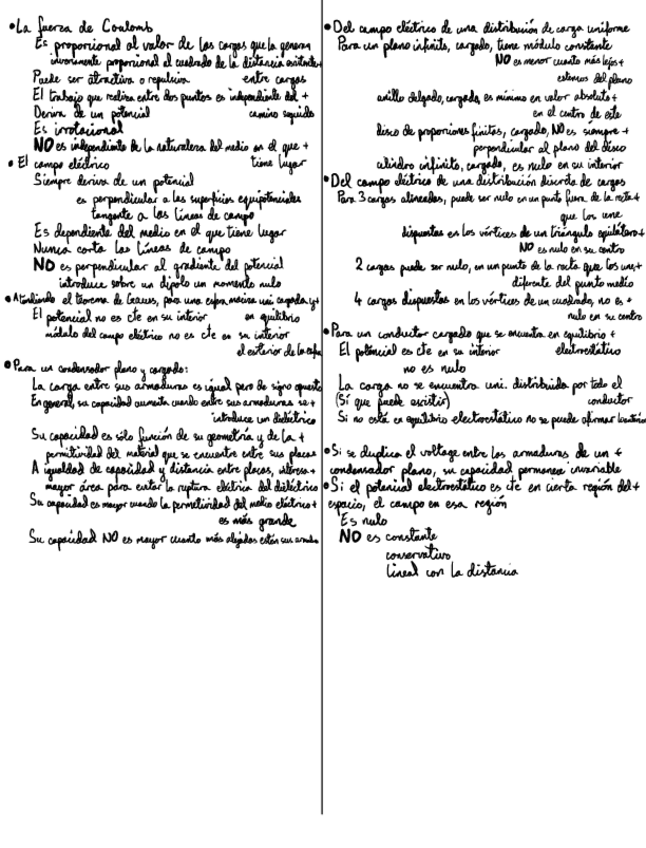 •La fuerza de Coulomb
Es proporcional al valor de las cargas que la generan
inversamente proporcional al cuadrado de la distancia existente+
Puede ser atractiva o repulsiva entre cargas
El trabajo que realiza entre dos puntos es independiente del +
Deriva de un potencial camino seguido
Es irrotacional
NO es independiente de la naturaleza del medio en el que +
• El campo eléctrico tiene lugar
Siempre deriva de un potencial
es perpendicular a las superficies equipotenciales
tangente a las líneas de campo
Es dependiente del medio en el que tiene lugar
Nunca corta las líneas de campo
NO es perpendicular al gradiente del potencial
introduce sobre un dipolo un momento nulo
• Atendiendo el teorema de Gauss, para una esfera maciza uni cargada y+
El potencial no es cte en su interior en equilibrio
módulo del campo eléctrico no es cte en su interior
el exterior de la esfera
• Para un condensador plano y cargado:
La carga entre sus armaduras es igual pero de signo opuesto
En general, su capacidad aumenta cuando entre sus armaduras se +
introduce un dieléctrico
Su capacidad es sólo función de su geometría y de la +
permitividad del material que se encuentre entre sus placas
A igualdad de capacidad y distancia entre placas, interesa+
mayor área para evitar la ruptura eléctrica del dieléctrico
Su capacidad es mayor cuando la permitividad del medio eléctrico+
es más grande
Su capacidad NO es mayor cuanto más alejadas estén sus
• Del campo eléctrico de una distribución de carga uniforme
Para un plano infinito, cargado, tiene módulo constante
NO es menor cuanto más lejos+
estemos del plano
anillo delgado, cargado, es mínimo en valor absoluto+
en el centro de este
disco de proporciones finitas, cargado, NO es siempre +
perpendicular al plano del disco
cilindro infinito, cargado, es nulo en su interior
•Del campo eléctrico de una distribución discreta de cargas
Para 3 cargas alineadas, puede ser nulo en un punto fuera de la recta+
que los une
dispuestas en los vértices de un triángulo equilátero+
NO es nulo en su centro
2 cargas puede ser nulo, en un punto de la recta que los une,+
diferente del punto medio
4 cargas dispuestas en los vértices de un cuadrado, no es +
nulo en su centro
•Para un conductor cargado que se encuentra en equilibrio +
El potencial es cte en su interior electrostático
no es nulo
La carga no se encuentra uni. distribuida por todo el
(Sí que puede existir) conductor
Si no está en equilibrio electrostático no se puede afirmar
•Si se duplica el voltage entre las armaduras de un +
condensador plano, su capacidad permanece invariable
•Si el potencial electrostático es cte en cierta región del+
espacio, el campo en esa región
Es nulo
NO es constante
conservativo
lineal con la distancia